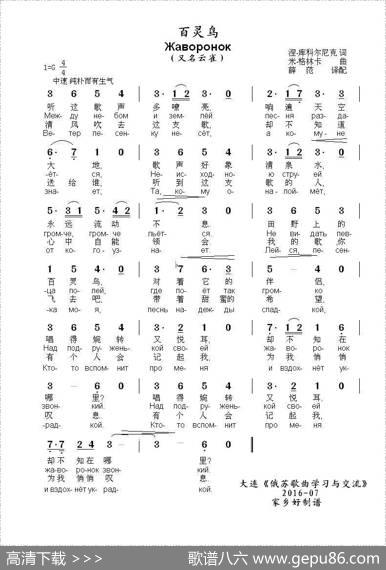 百灵鸟
Жаворонок
（又名云雀）
涅·库科尔尼克 词
米·格林卡 曲
薛 范 译配
1=G 4/4
中速 纯朴而有生气
3 6 5 4 3· 1 2 3 0 3· 1 2 3 0
听 这 歌 声 多 嘹 亮， 响 遍 天 空
Меж- ду не- бом и зем- лёй пес- ня разда-
清 风 吹 去 这 支 歌， 却 不 知 道
Ве- тер пе- сен- ку не- сёт, а ко- му- не
6· 7 1 0 3 6 5 4 3· 1 2 3
大 地， 歌 声 好 象 清 泉 水，
ёт- ся, Не- ис- ход- но- ю стру- ей
送 给 谁， 听 到 这 支 歌 的 人，
зна- ет, Та, ко- му о на- поймёт,
5· 3 1 5· 4 2 1· 2 3 0 5 5 4 3
永 远 流 动 不 息。 田 野 上 的
гром-че, гром-че льёт- ся. Не ви- дать пев-
心 中 自 能 领 会。 我 的 歌 你
от ко- го- уз- нает. Лей- ся, пес- ня-
1 2 5 4 0 3 7 6 3 5 — 4 0
百 灵 鸟， 对 着 它 的 伴 侣，
ца полей, где поёт так гром-ко
飞 去 吧， 带 着 甜 蜜的 希 望，
ка мо- я, песнь на- деж- ды слад- кой.
1 3 6 5 4 3 2 1 0
唱 得 婉 转 又 悦 耳， 却 不 知 在
Над под- ру- жень- кой сво- ей жа- во- ро- нок
有 个 人 会 记 起 我， 为 我 悄 悄
Кто- то вспом- нит про ме- ня и вздох- нёт ук-
8 — 1 0 1 3 6 5 4 3 2 1 0
哪 里？ 唱 得 婉 转 又 悦 耳，
звон- кий. Над под- ру- жень- кой сво- ей
叹 息。 有 个 人 会 记 起 我，
рад- кой. Кто- то вспом- нит про ме- ня
7· 7· 2 4 3 — 6 0
却 不 知 在 哪 里？
жа-во- ро-нок звон- кий.
为 我 悄 悄 叹 息。
и вздох- нёт ук- рад- кой.
大连《俄苏歌曲学习与交流》
2016-07
家乡好制谱
高清下载 ↘>>> 歌谱八六 www.gepu86.com